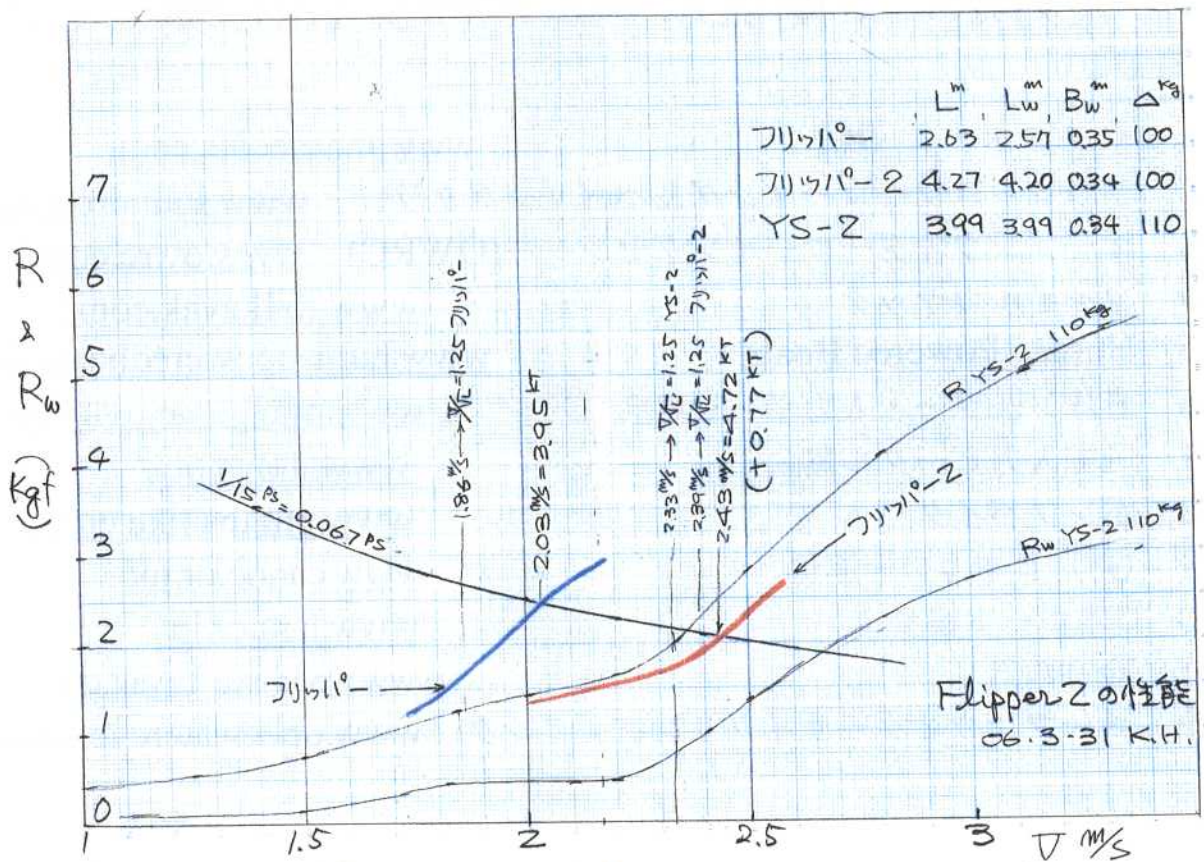 Lᵐ Lwᵐ Bwᵐ Δᵏᵍ
フリッパー 2.63 2.57 0.35 100
フリッパー2 4.27 4.20 0.34 100
YS-2 3.99 3.99 0.34 110
R & Rw kgf
7
6
5
4
3
2
1
0
1/15 PS = 0.067 PS
1.86 m/s → V/√L = 1.25 フリッパー
2.03 m/s = 3.95 KT
2.33 m/s → V/√L = 1.25 YS-2
2.39 m/s → V/√L = 1.25 フリッパー2
2.43 m/s = 4.72 KT
(+0.77 KT)
R YS-2 110 kg
フリッパー2
Rw YS-2 110 kg
フリッパー
Flipper 2 の性能
06.3.31 K.H.
1
1.5
2
2.5
3
V m/s